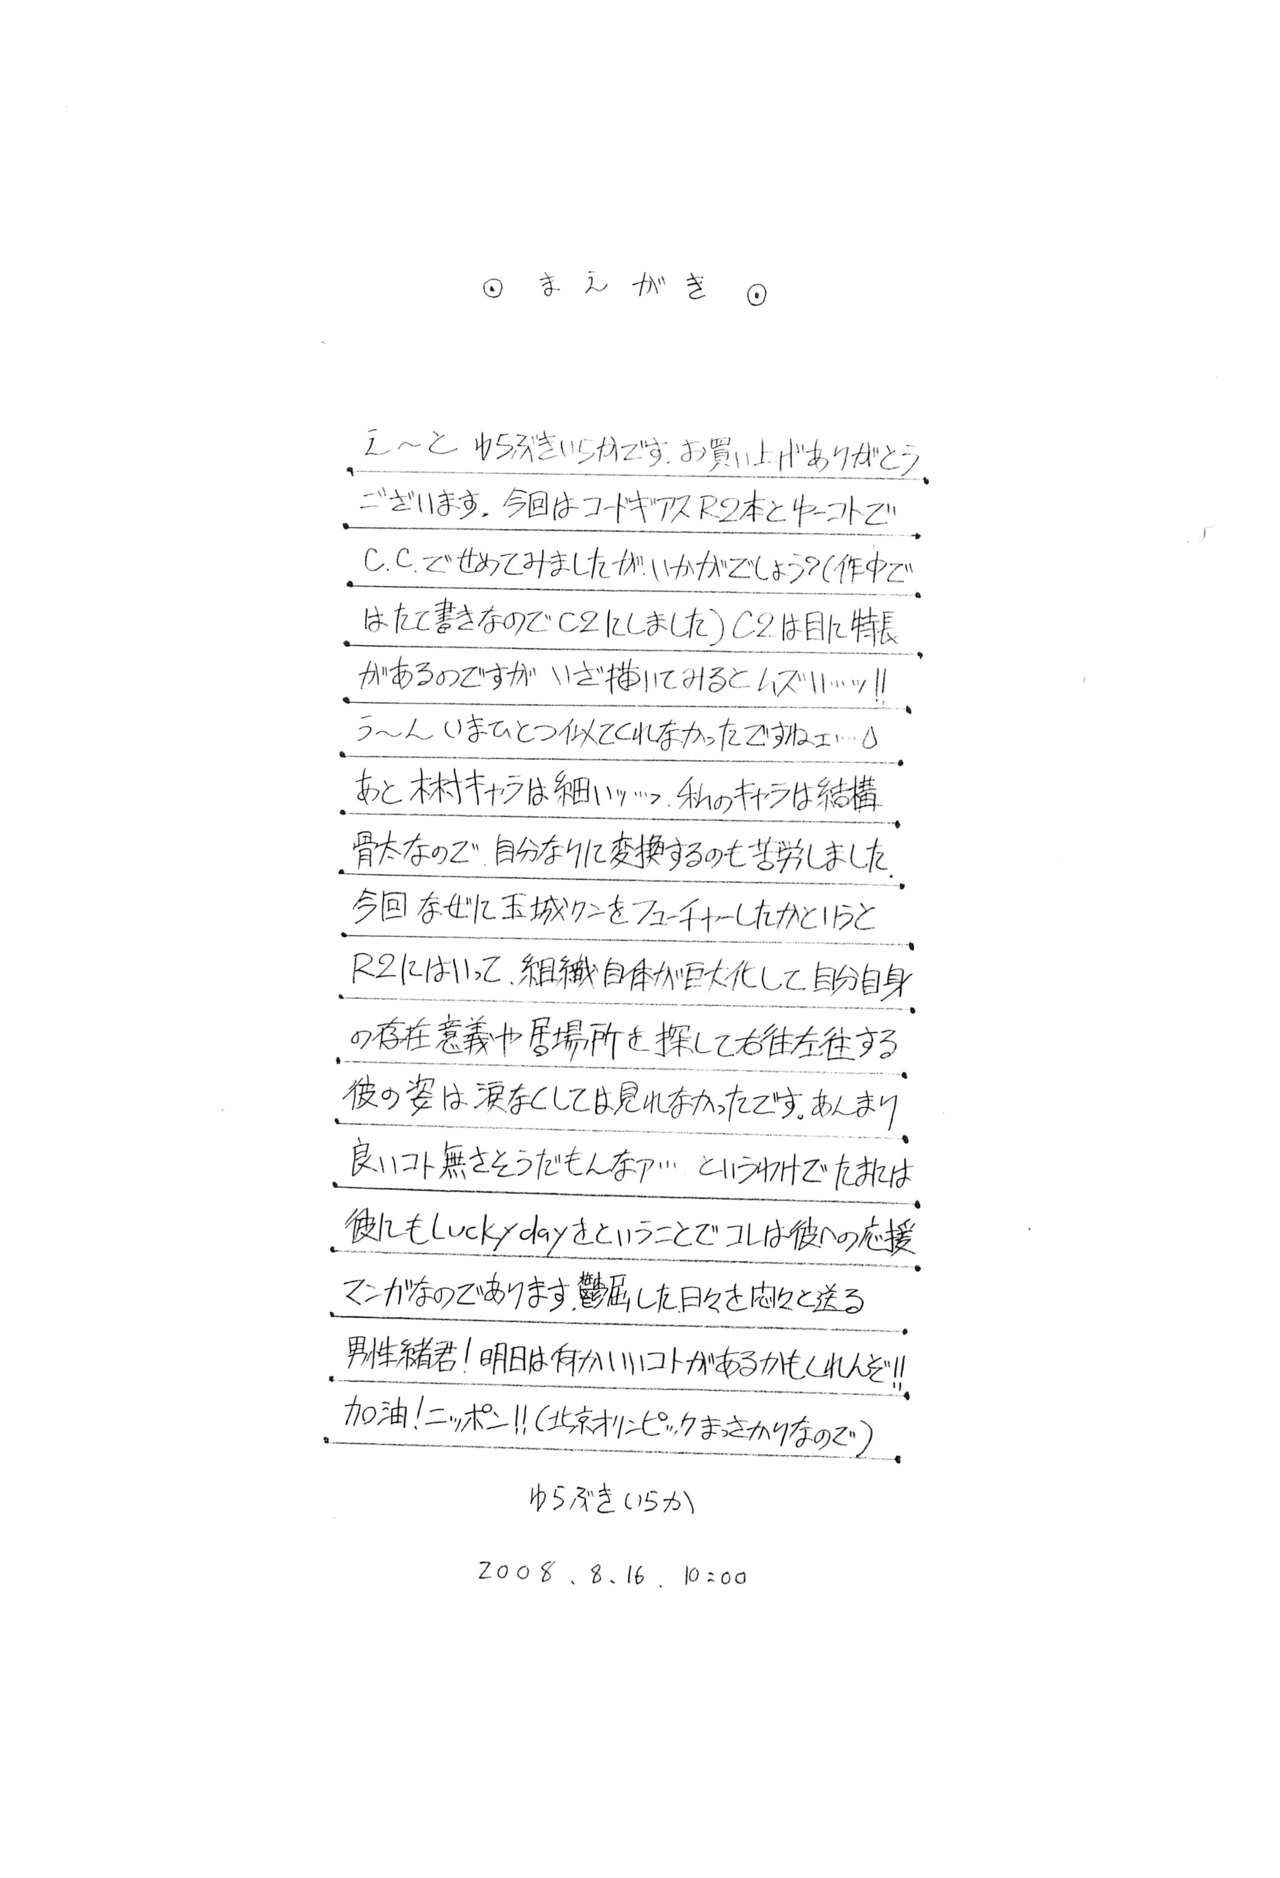 ⊙ まえがき ⊙
え〜と ゆらぶきいらかです.お買い上げありがとう
ございます.今回はコードギアスR2本とゆーコトで
C.C.でせめてみましたが.いかがでしょう?(作中で
はたて書きなのでC2にしました)C2は目に特長
があるのですが いざ描いてみるとムズい…ッ!!
う〜ん いまひとつ似てくれなかったですねェ…
あと 木村キャラは細いッ…っ.私のキャラは結構
骨太なので.自分なりに変換するのも苦労しました.
今回 なぜに玉城クンをフューチャーしたかというと
R2にはいって.組織自体が巨大化して自分自身
の存在意義や居場所を探して右往左往する
彼の姿は涙なくしては見れなかったです。あんまり
良いコト無さそうだもんなァ… というわけでたまには
彼にもLucky dayをということでコレは彼への応援
マンガなのであります.鬱屈した日々を悶々と送る
男性緒君!明日は何かいいコトがあるかもしれんぞ!!
加油!ニッポン!!(北京オリンピックまっさかりなので)
ゆらぶきいらか
2008.8.16.10:00